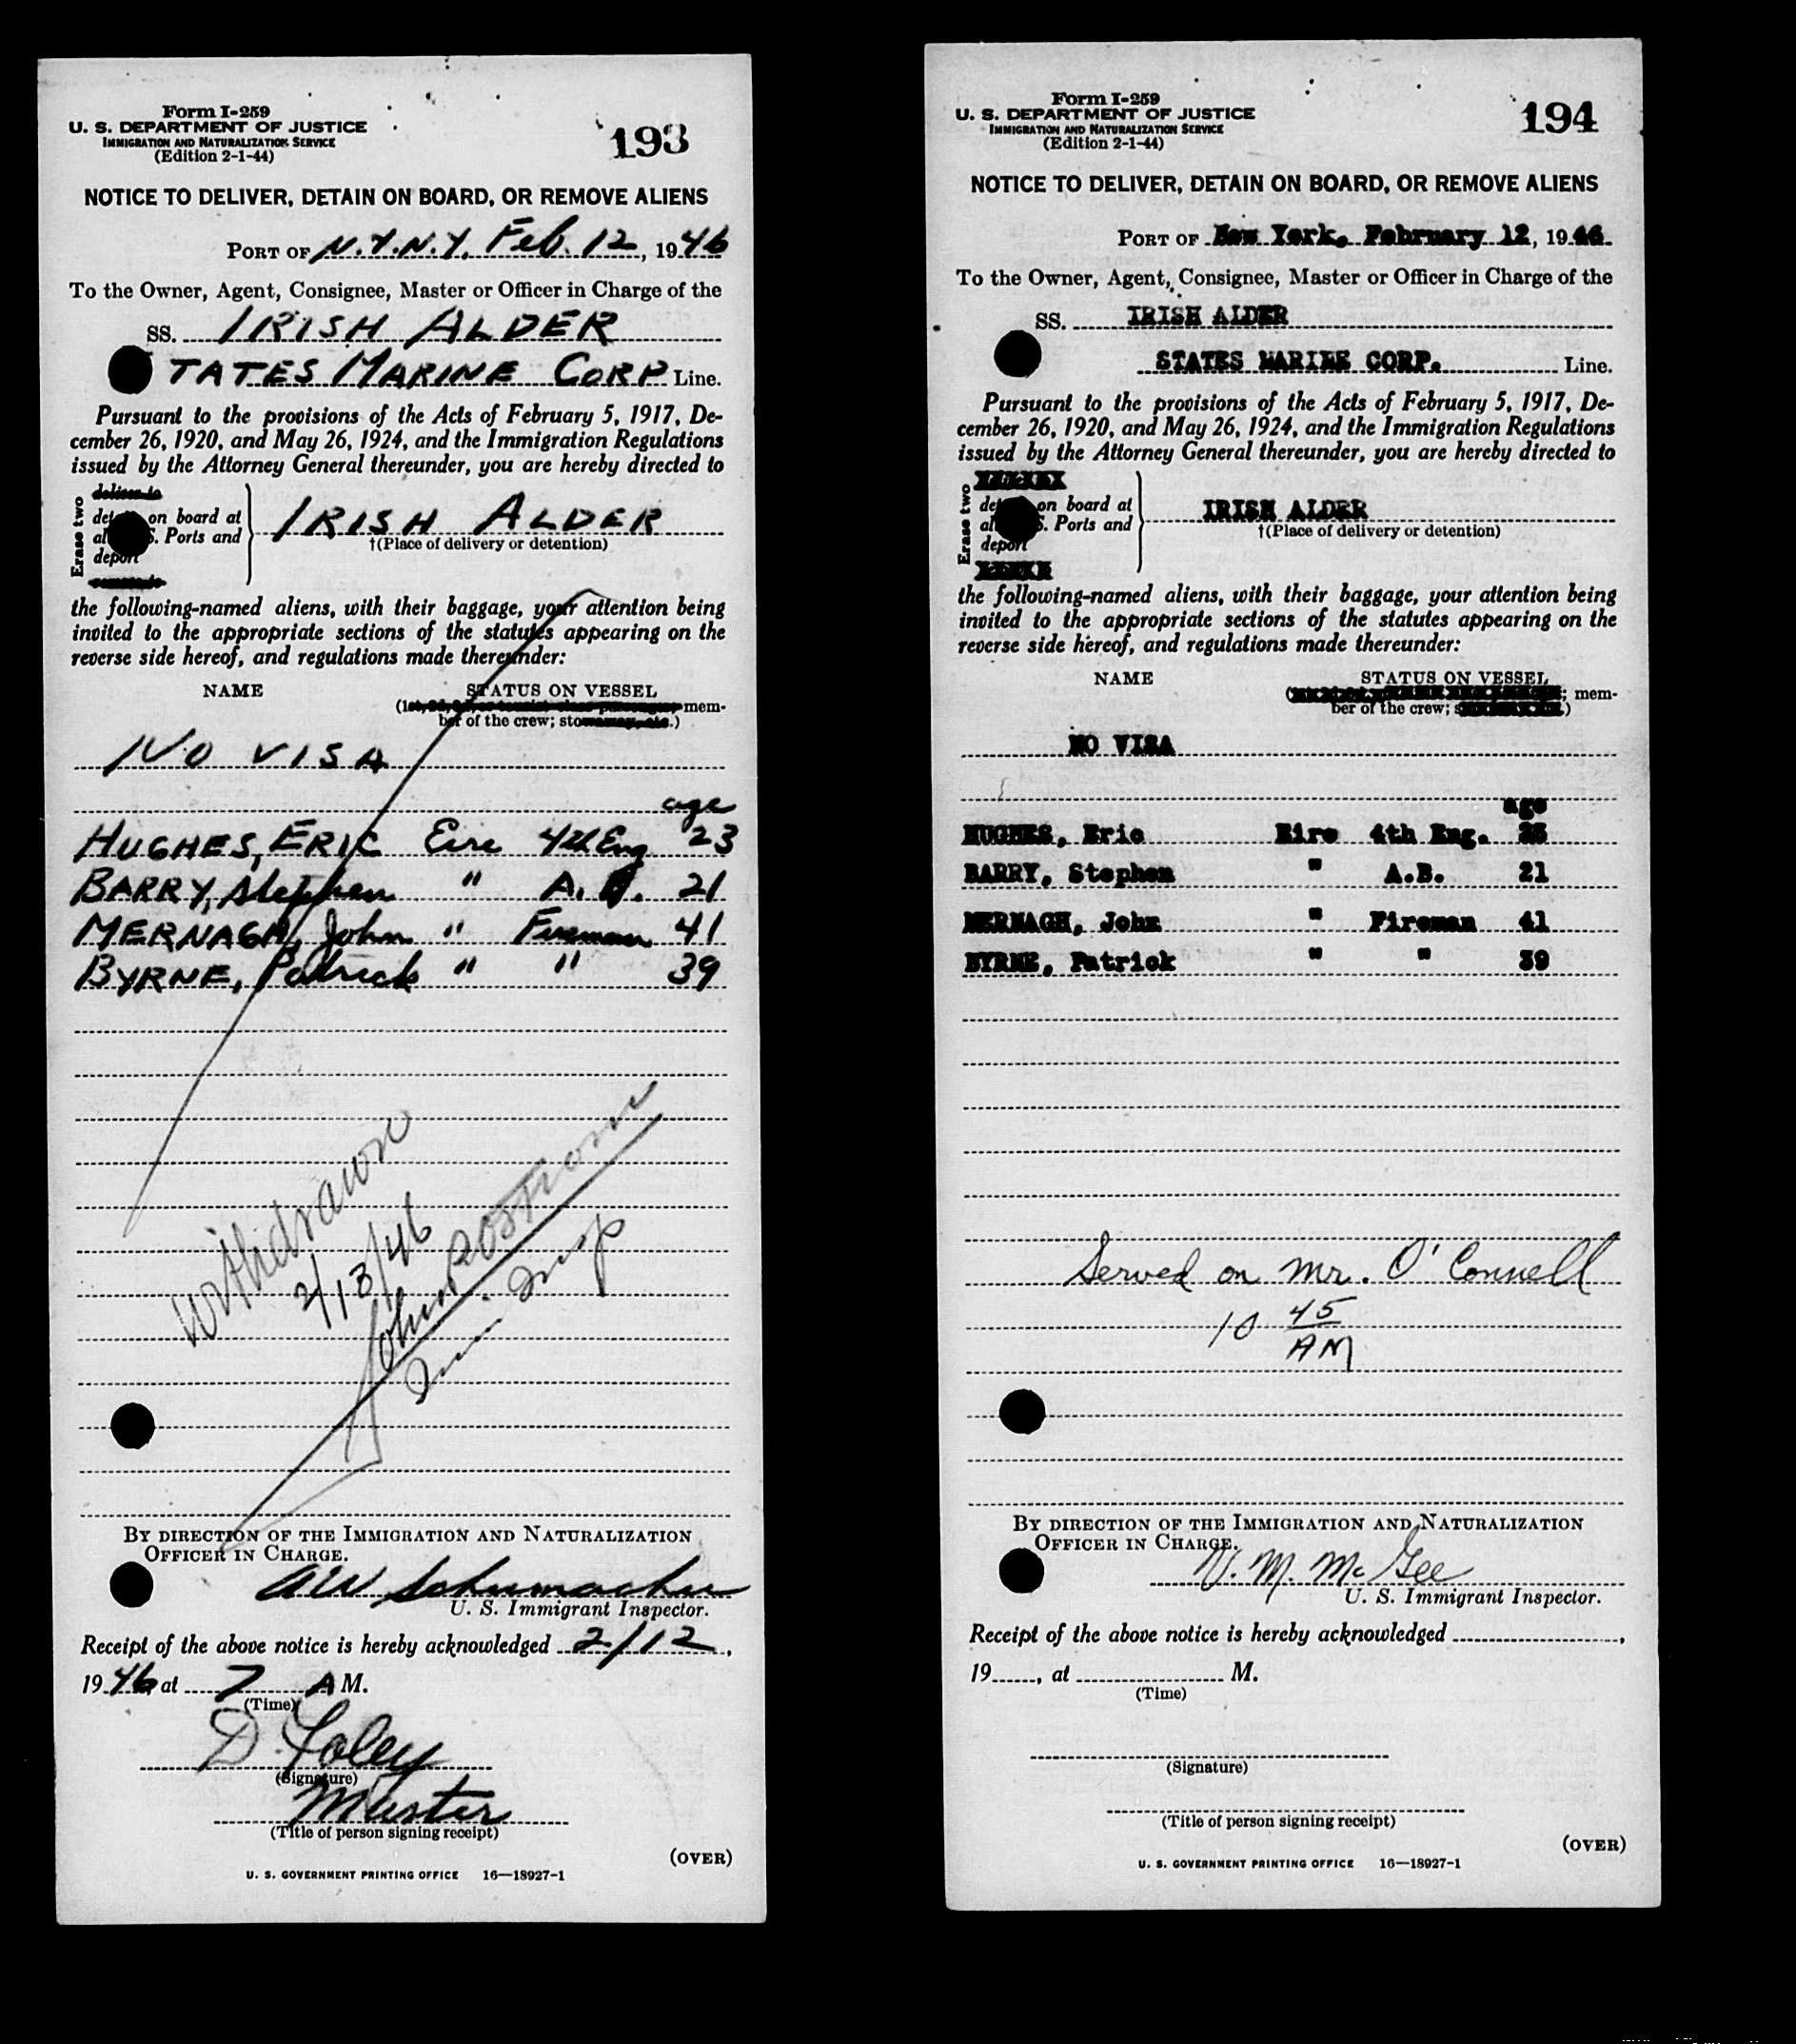 Form I-259
U. S. DEPARTMENT OF JUSTICE
IMMIGRATION AND NATURALIZATION SERVICE
(Edition 2-1-44)
193
NOTICE TO DELIVER, DETAIN ON BOARD, OR REMOVE ALIENS
PORT OF N.Y.N.Y. Feb. 12, 1946
To the Owner, Agent, Consignee, Master or Officer in Charge of the
SS. IRISH ALDER
TATES MARINE CORP Line.
Pursuant to the provisions of the Acts of February 5, 1917, De-
cember 26, 1920, and May 26, 1924, and the Immigration Regulations
issued by the Attorney General thereunder, you are hereby directed to
Erase two
deliver to
det on board at
al S. Ports and
deport
remove to
IRISH ALDER
†(Place of delivery or detention)
the following-named aliens, with their baggage, your attention being
invited to the appropriate sections of the statutes appearing on the
reverse side hereof, and regulations made thereunder:
NAME STATUS ON VESSEL
(1st, 2d, 3d, or tourist class passenger; mem-
ber of the crew; stowaway, etc.)
NO VISA
age
HUGHES, ERIC Eire 4th Eng. 23
BARRY, Stephen " A. B. 21
MERNAGH, John " Fireman 41
BYRNE, Patrick " " 39
Withdrawn
2/13/46
John
Imm. Insp
BY DIRECTION OF THE IMMIGRATION AND NATURALIZATION
OFFICER IN CHARGE.
AW Schumacher
U. S. Immigrant Inspector.
Receipt of the above notice is hereby acknowledged 2/12,
1946, at 7 A M.
(Time)
D Foley
(Signature)
Master
(Title of person signing receipt)
(OVER)
U. S. GOVERNMENT PRINTING OFFICE 16—18927-1
Form I-259
U. S. DEPARTMENT OF JUSTICE
IMMIGRATION AND NATURALIZATION SERVICE
(Edition 2-1-44)
194
NOTICE TO DELIVER, DETAIN ON BOARD, OR REMOVE ALIENS
PORT OF New York, February 12, 1946.
To the Owner, Agent, Consignee, Master or Officer in Charge of the
SS. IRISH ALDER
STATES MARINE CORP. Line.
Pursuant to the provisions of the Acts of February 5, 1917, De-
cember 26, 1920, and May 26, 1924, and the Immigration Regulations
issued by the Attorney General thereunder, you are hereby directed to
Erase two
det on board at
al S. Ports and
deport
IRISH ALDER
†(Place of delivery or detention)
the following-named aliens, with their baggage, your attention being
invited to the appropriate sections of the statutes appearing on the
reverse side hereof, and regulations made thereunder:
NAME STATUS ON VESSEL
; mem-
ber of the crew; )
NO VISA
age
HUGHES, Eric Eire 4th Eng. 23
BARRY, Stephen " A.B. 21
MERNAGH, John " Fireman 41
BYRNE, Patrick " " 39
Served on Mr. O'Connell
10 45
AM
BY DIRECTION OF THE IMMIGRATION AND NATURALIZATION
OFFICER IN CHARGE.
V. M. McGee
U. S. Immigrant Inspector.
Receipt of the above notice is hereby acknowledged ,
19 , at M.
(Time)
(Signature)
(Title of person signing receipt)
(OVER)
U. S. GOVERNMENT PRINTING OFFICE 16—18927-1